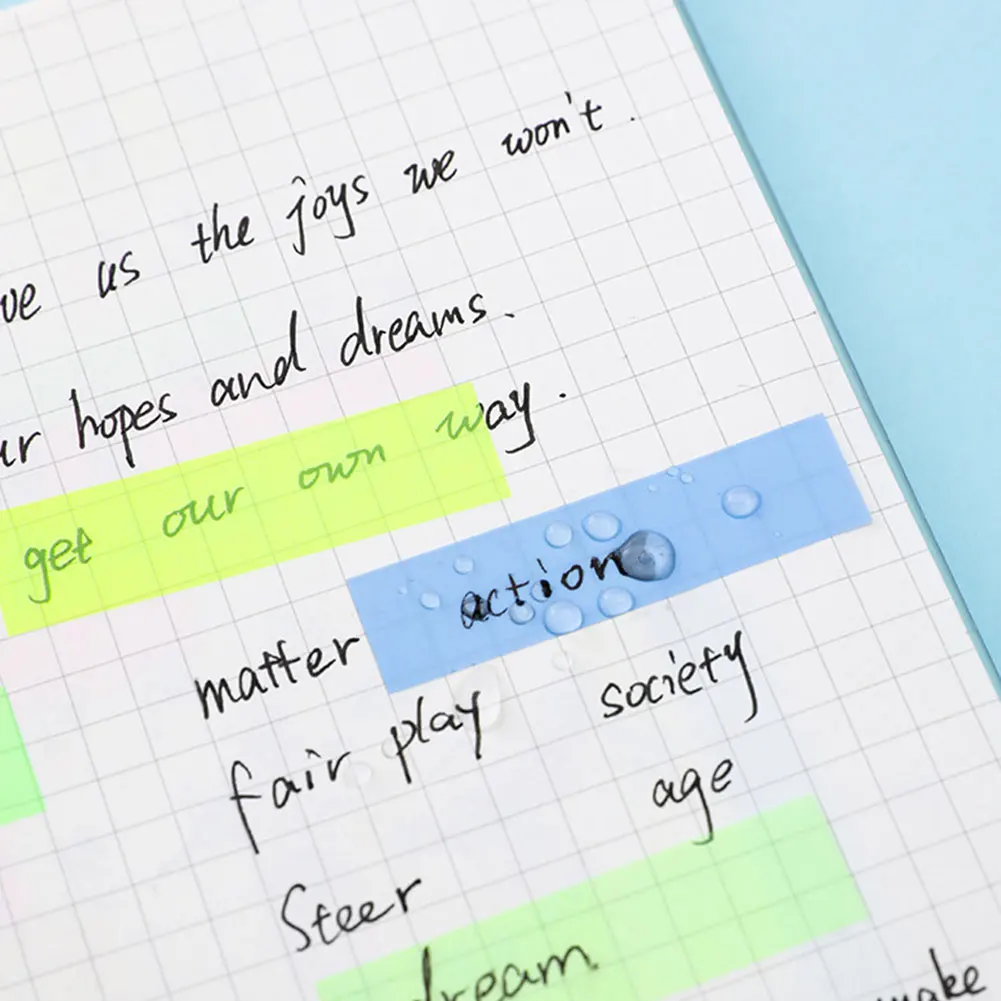 ve us the joys we won't.
ur hopes and dreams.
get our own way.
matter action
fair play society
age
Steer
dream
make